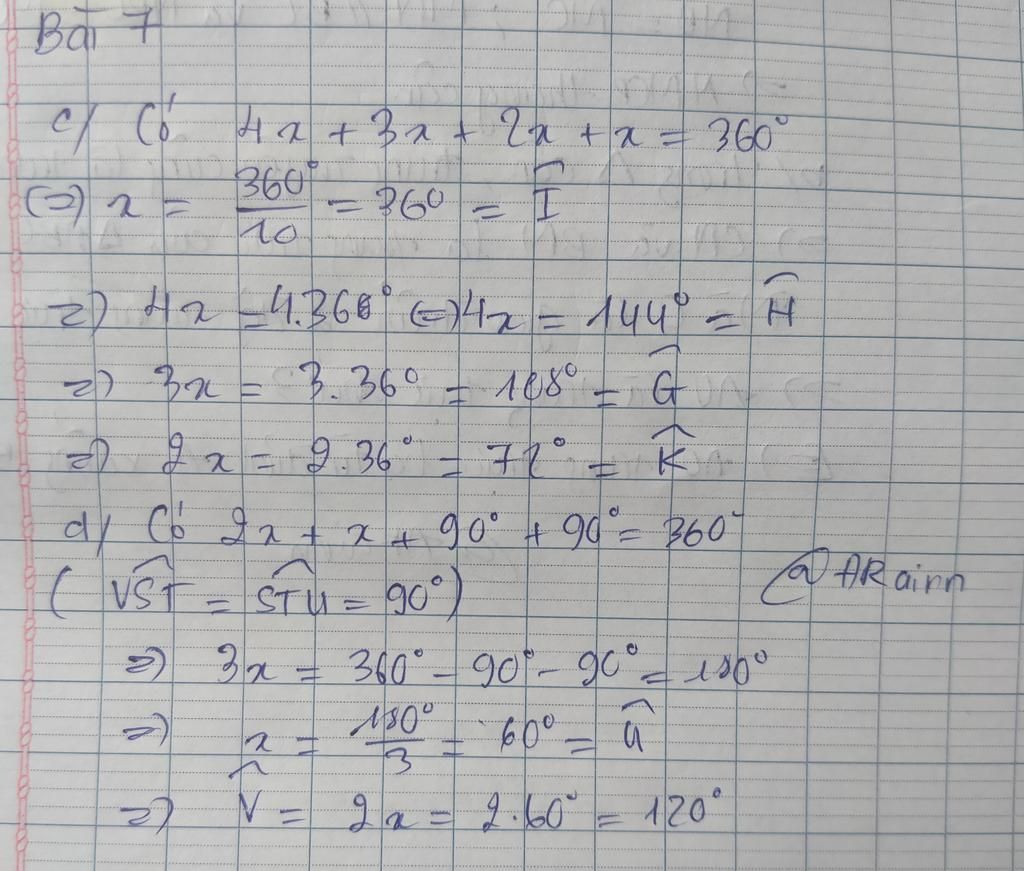 Bài 7
c/ Có 4x + 3x + 2x + x = 360°
(=) x = \frac{360°}{10} = 360 = \widehat{I}
=) 4x = 4.360° (=) 4x = 144° = \widehat{H}
=) 3x = 3.36° = 108° = \widehat{G}
=) 2x = 2.36° = 72° = \widehat{K}
d/ Có 2x + x + 90° + 90° = 360°
( \widehat{VST} = \widehat{STU} = 90°)
@ARainn
=) 3x = 360° - 90° - 90° = 180°
=) x = \frac{180°}{3} = 60° = \widehat{U}
=) \widehat{V} = 2x = 2.60° = 120°